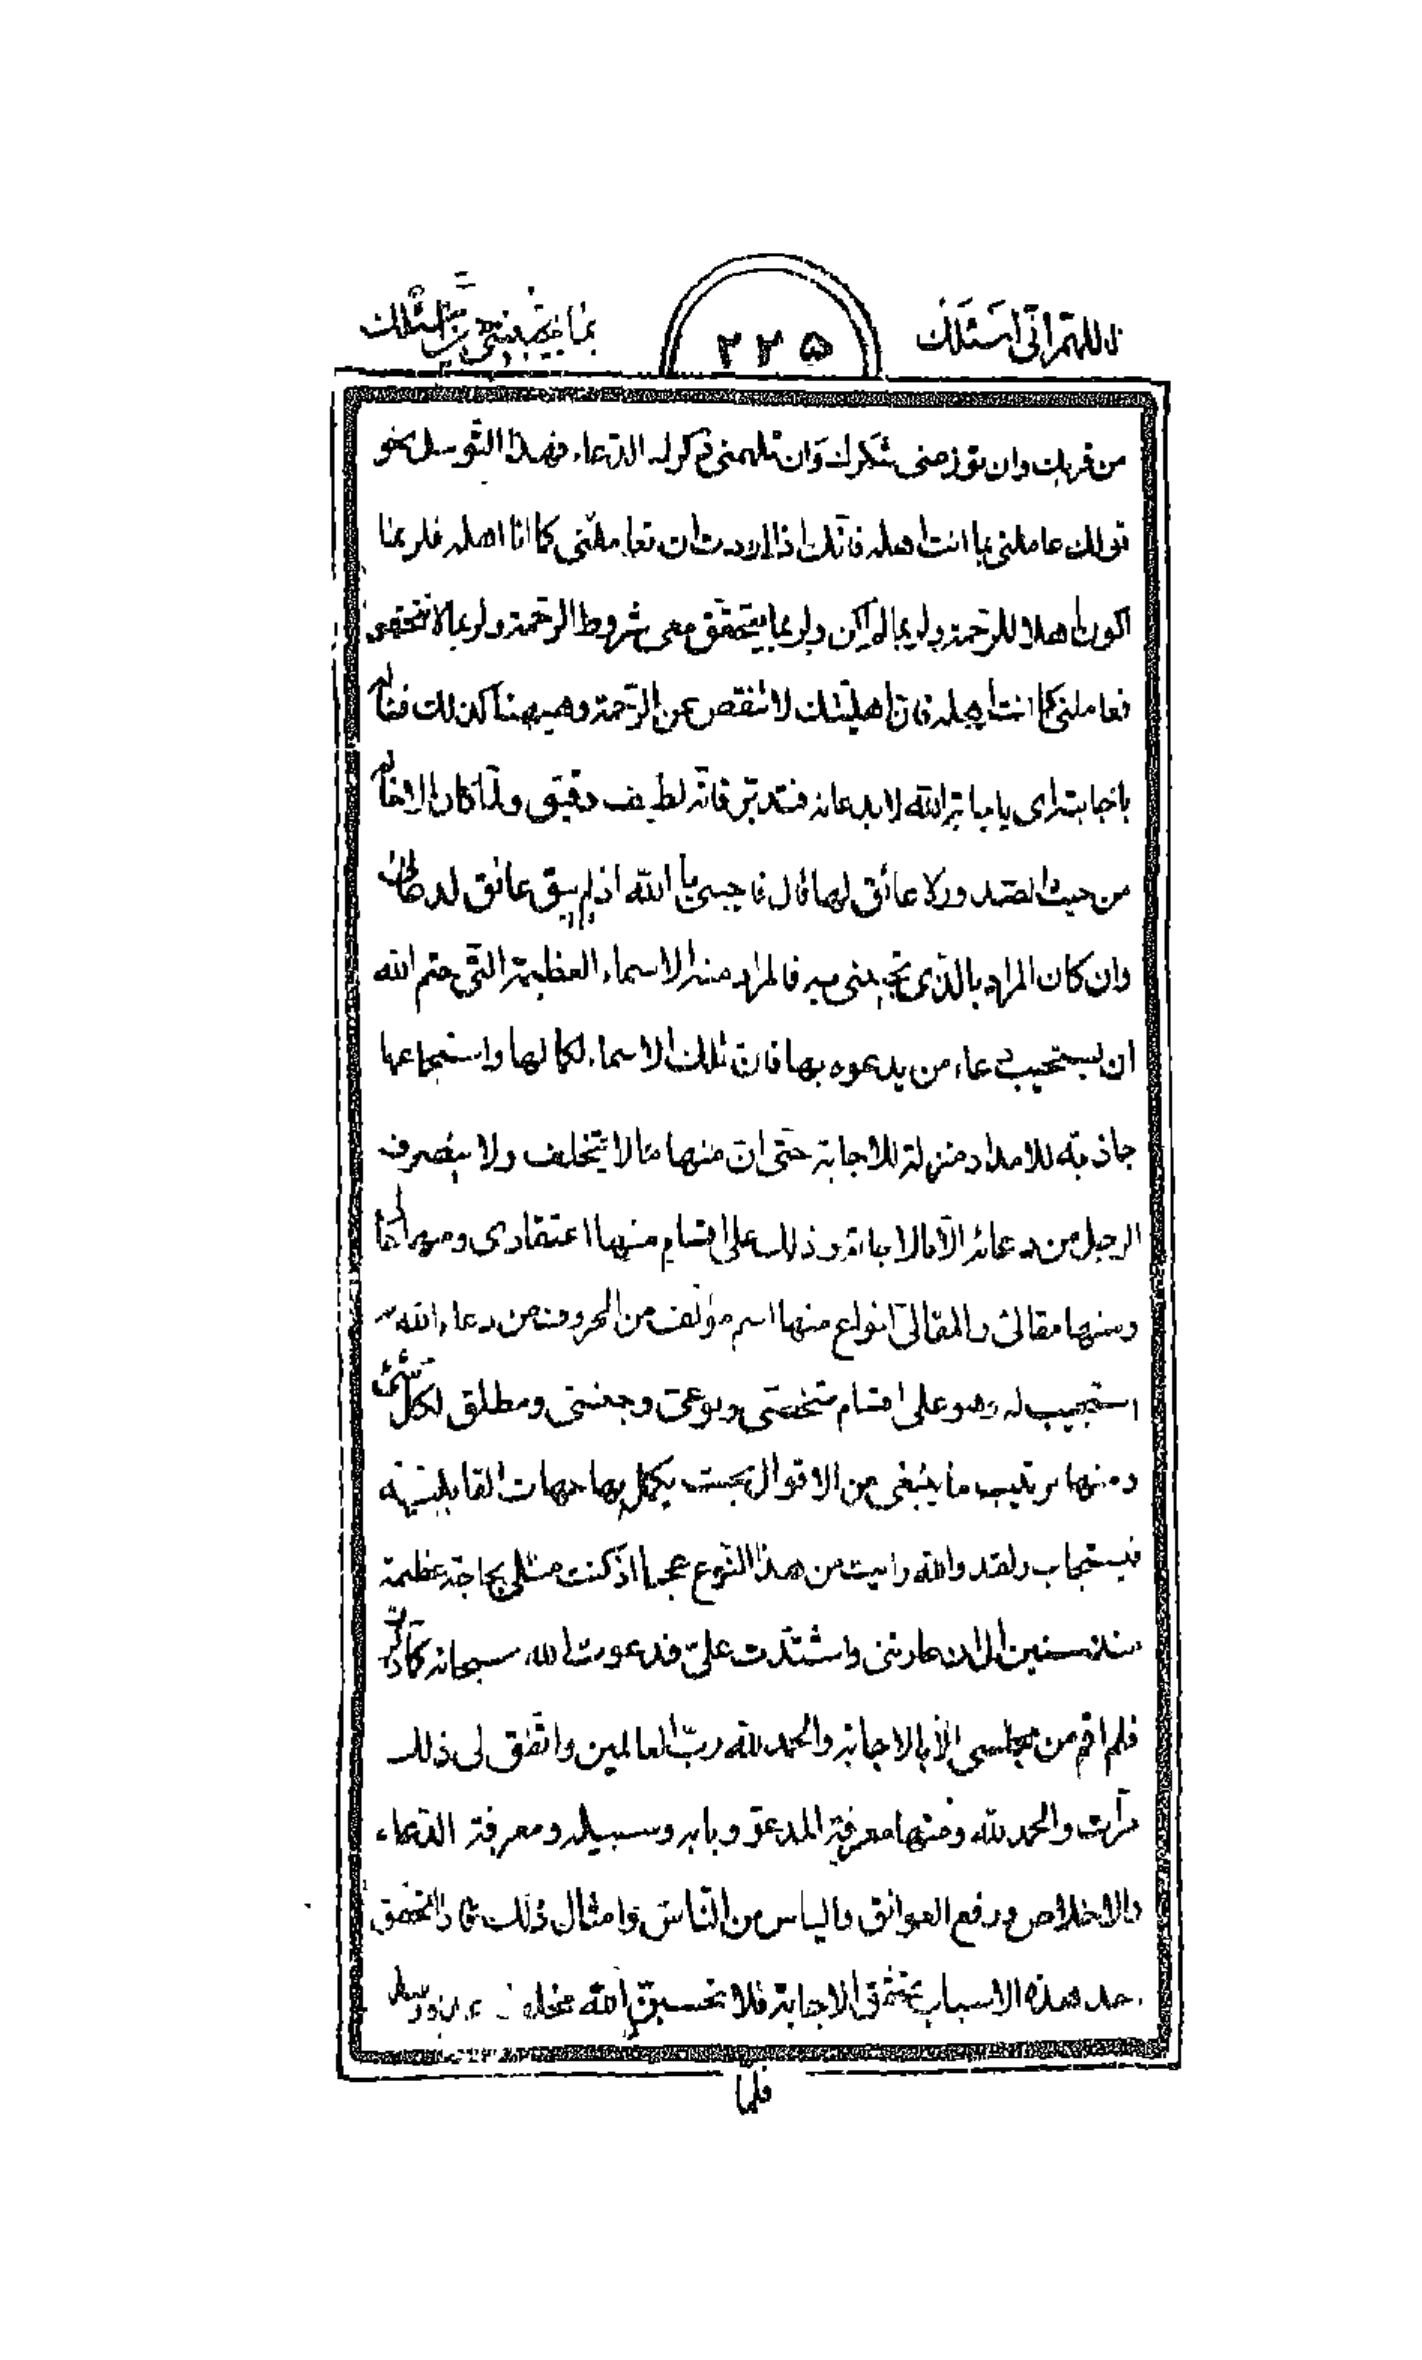 اللهم انی اسئلک
۲۲۵
بما تجیبنی حین اسئلک
من قربك وان توزعنی شکرك وان تلهمنی ذکرك الدعاء فهذا التوسل نحو
قولك عاملنی بما انت اهله فانك اذا اردت ان تعاملنی کما انا اهله فلربما
اکون اهلا للرحمة ولربما لم اکن ولربما یتحقق معی شروط الرحمة ولربما لا تتحقق
فعاملنی کما انت اهله فان اهلیتك لا تنقص عن الرحمة وهیهنا کذلك
باجابته ای باجابة الله لا بدعائه فتدبر فانه لطیف دقیق ولما کان
من حیث الصمد ولا عائق لها قال فاجبنی یا الله اذ لم یبق عائق
وان کان المراد بالذی تجیبنی به فالمراد منه الاسماء العظیمة التی حتم الله
ان یستجیب دعاء من یدعوه بها فان تلك الاسماء لکمالها واستجماعها
جاذبة للامداد منزلة للاجابة حتی ان منها ما لا یتخلف ولا ینصرف
الرجل من دعائه الا بالاجابة وذلك علی اقسام منها اعتقادی ومنها
ومنها مقالی والمقالی انواع منها اسم مؤلف من الحروف من دعاء الله
استجیب له وهو علی اقسام شخصی ونوعی وجنسی ومطلق لکل شیء
ومنها ترتیب ما ینبغی من الاقوال بحیث یکمل بها جهات القابلیة
فیستجاب ولقد والله رایت من هذا النوع عجبا اذ کنت بحاجة عظیمة
سنین واشتدت علی فدعوت الله سبحانه
فلم اقم من مجلسی الا بالاجابة والحمد لله رب العالمین واتفق لی ذلك
مرات والحمد لله ومنها معرفة المدعو وبابه وسبیله ومعرفة الدعاء
والاخلاص ورفع العوائق والیاس من الناس وامثال ذلك فاذا تحقق
احد هذه الاسباب تحقق الاجابة فلا تحسبن الله مخلف
فلما